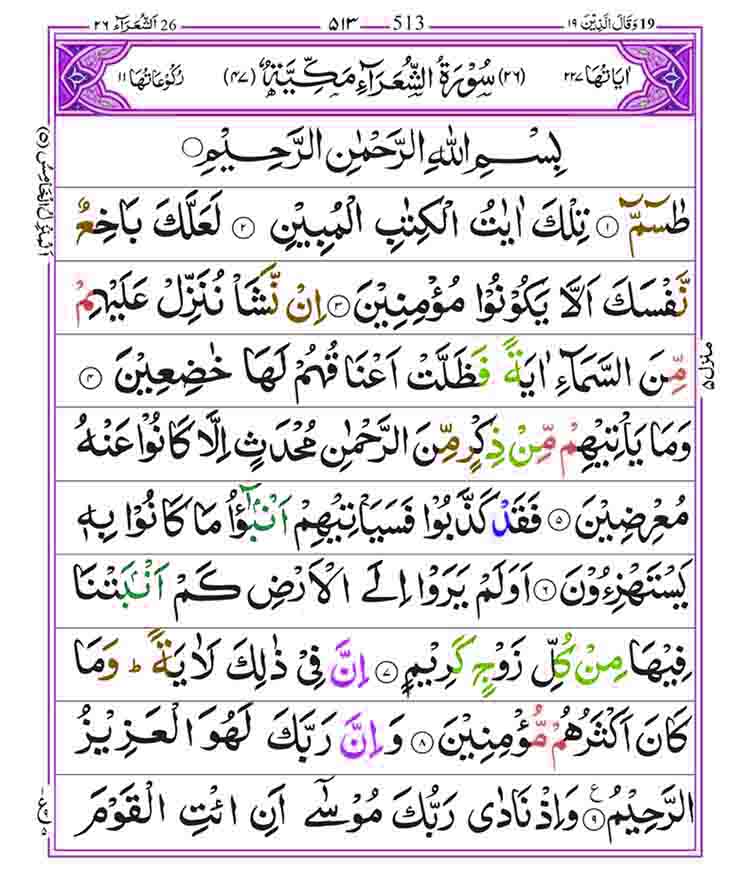 19 وَقَالَ الَّذِيْنَ ١٩ 513 ٥١٣ 26 اَلشُّعَرَآء ٢٦
اٰيَاتُهَا ٢٢٧ (٢٦) سُوْرَةُ الشُّعَرَآءِ مَكِّيَّةٌ (٤٧) رُكُوْعَاتُهَا ١١
بِسْمِ اللهِ الرَّحْمٰنِ الرَّحِيْمِ
طٰسٓمّٓ ١ تِلْكَ اٰيٰتُ الْكِتٰبِ الْمُبِيْنِ ٢ لَعَلَّكَ بَاخِعٌ
نَّفْسَكَ اَلَّا يَكُوْنُوْا مُؤْمِنِيْنَ ٣ اِنْ نَّشَاْ نُنَزِّلْ عَلَيْهِمْ
مِّنَ السَّمَآءِ اٰيَةً فَظَلَّتْ اَعْنَاقُهُمْ لَهَا خٰضِعِيْنَ ٤
وَمَا يَاْتِيْهِمْ مِّنْ ذِكْرٍ مِّنَ الرَّحْمٰنِ مُحْدَثٍ اِلَّا كَانُوْا عَنْهُ
مُعْرِضِيْنَ ٥ فَقَدْ كَذَّبُوْا فَسَيَاْتِيْهِمْ اَنْۢبٰٓؤُا مَا كَانُوْا بِهٖ
يَسْتَهْزِءُوْنَ ٦ اَوَلَمْ يَرَوْا اِلَى الْاَرْضِ كَمْ اَنْۢبَتْنَا
فِيْهَا مِنْ كُلِّ زَوْجٍ كَرِيْمٍ ٧ اِنَّ فِيْ ذٰلِكَ لَاٰيَةً ؕ وَمَا
كَانَ اَكْثَرُهُمْ مُّؤْمِنِيْنَ ٨ وَاِنَّ رَبَّكَ لَهُوَ الْعَزِيْزُ
الرَّحِيْمُ ٩ ع وَاِذْ نَادٰى رَبُّكَ مُوْسٰٓى اَنِ ائْتِ الْقَوْمَ
اَلْمَنْزِلُ الْخَامِسُ (٥)
منزل ٥